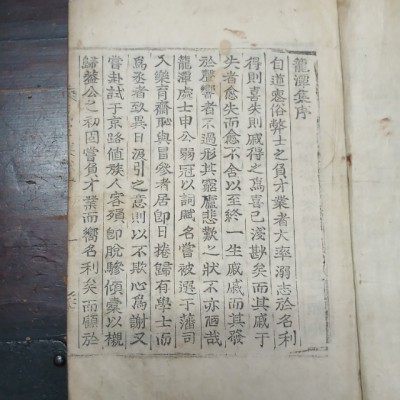 龍潭集序
自道喪俗弊士之負才業者大率溺志於名利
得則喜失則慼得之爲喜已淺尠矣而其慼于
失者愈失而愈不舍以至終一生戚戚而其發
於聲響者不過形其窮廬悲歎之狀不亦陋哉
龍潭處士申公弱冠以詞賦名嘗被選于藩司
入樂育齋恥與冒參者居卽日捲歸有學士而
爲丞者致異日汲引之意則以不欺心爲謝又
嘗赴試于京路値族人客殞卽脫驂傾橐以櫬
歸蓋公之初固嘗負才業而嚮名利矣而顧於